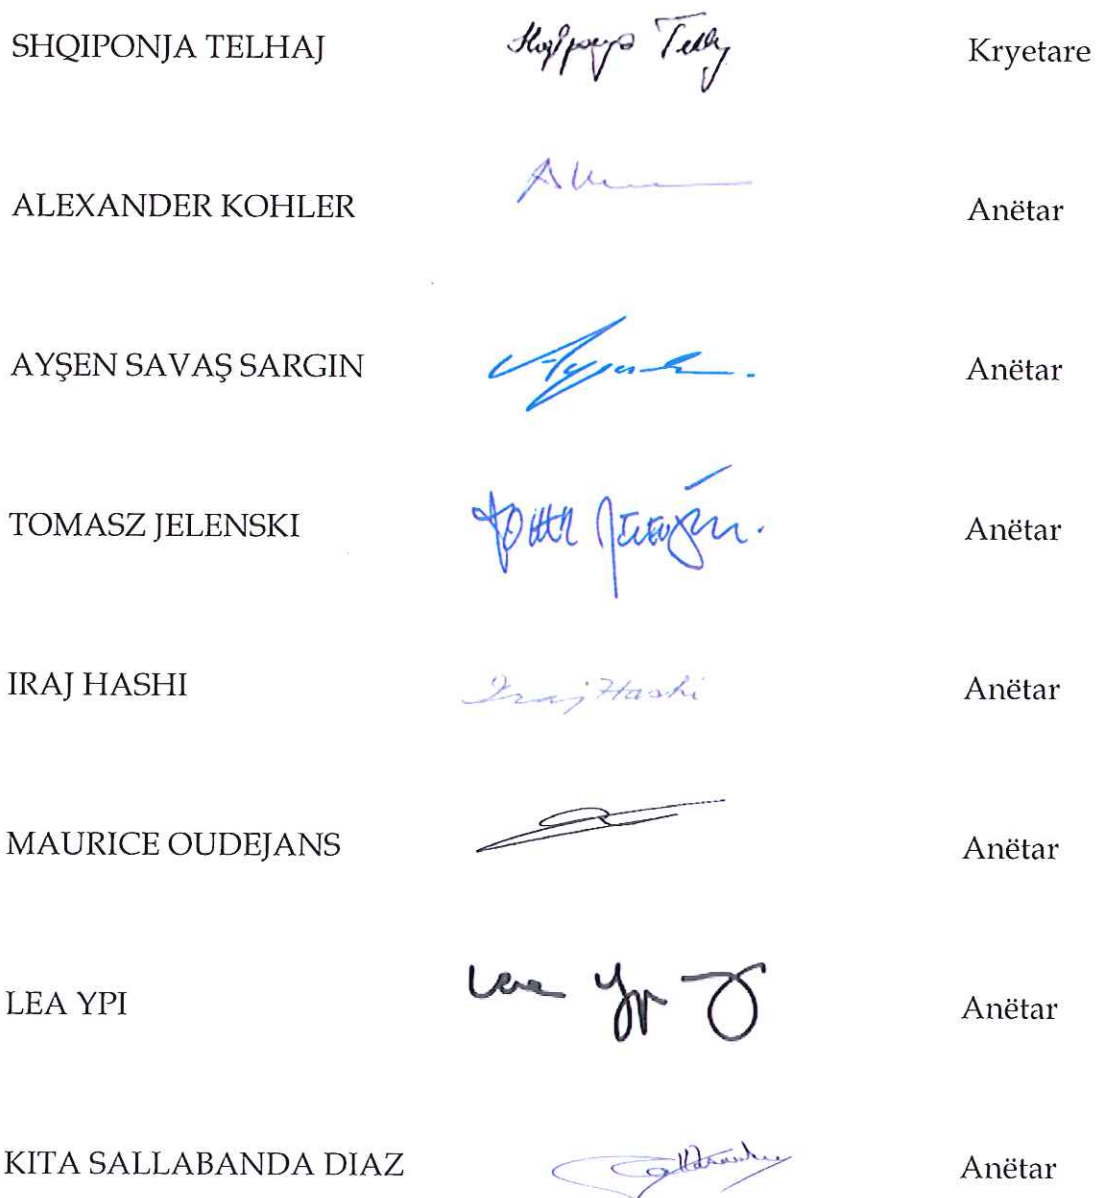 SHQIPONJA TELHAJ Shqiponja Telhaj Kryetare
ALEXANDER KOHLER Anëtar
AYŞEN SAVAŞ SARGIN Anëtar
TOMASZ JELENSKI Anëtar
IRAJ HASHI Iraj Hashi Anëtar
MAURICE OUDEJANS Anëtar
LEA YPI Lea Ypi Anëtar
KITA SALLABANDA DIAZ Anëtar